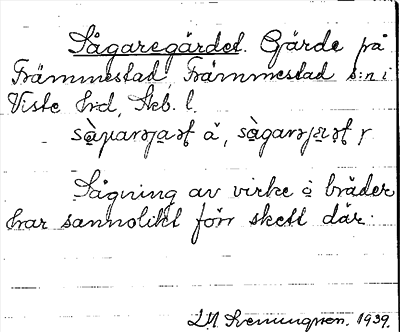 Sågaregärdet. Gärde på
Främmestad, Främmestad s:n i
Viste hrd, Skb. l.
Sågning av virke o bräder
har sannolikt förr skett där.
1939.